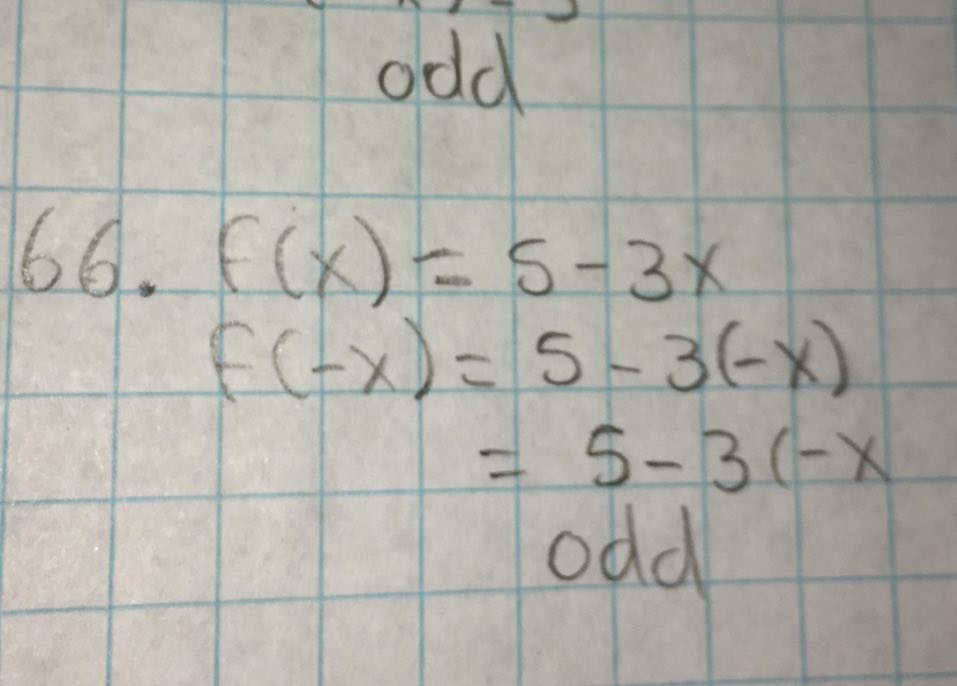 odd
66. f(x) = 5 - 3x
f(-x) = 5 - 3(-x)
= 5 - 3(-x
odd